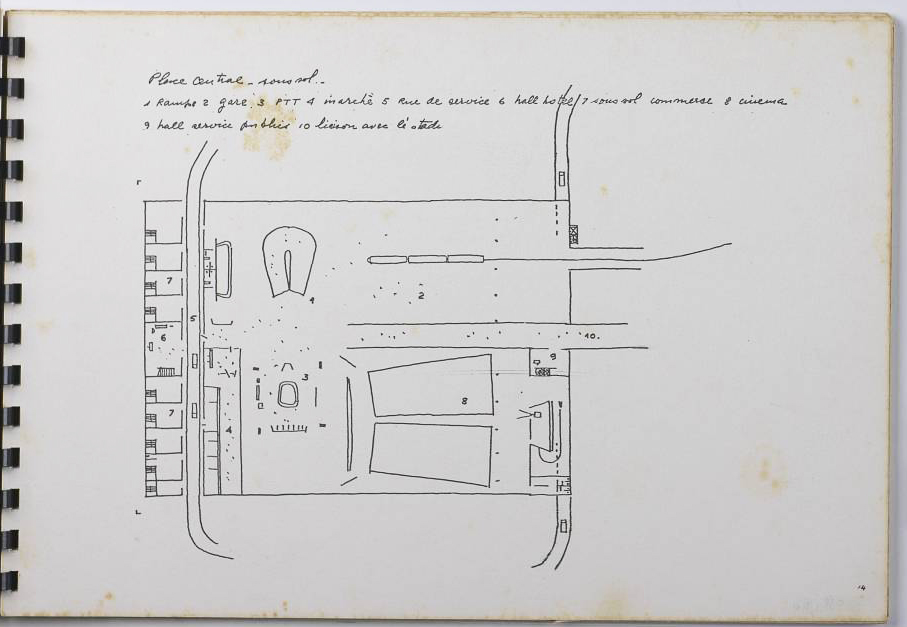 Place Central - sous sol -
1 Rampe 2 gare 3 PTT 4 marchè 5 Rue de service 6 hall hotel/7 sous sol commerce 8 cinema
9 hall service publics 10 liaison avec le stade
7
4
2
5
10.
6
9
3
8
7
4
14